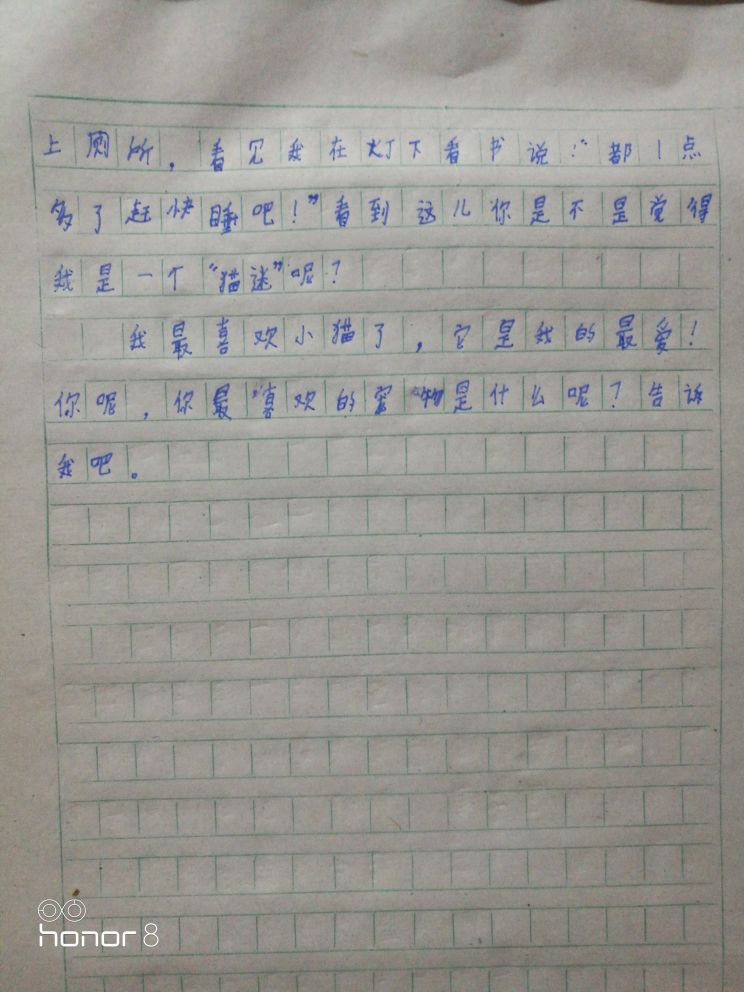 上厕所，看见我在灯下看书说：“都1点
多了赶快睡吧！”看到这儿你是不是觉得
我是一个“猫迷”呢？
我最喜欢小猫了，它是我的最爱！
你呢，你最喜欢的宠物是什么呢？告诉
我吧。
honor 8